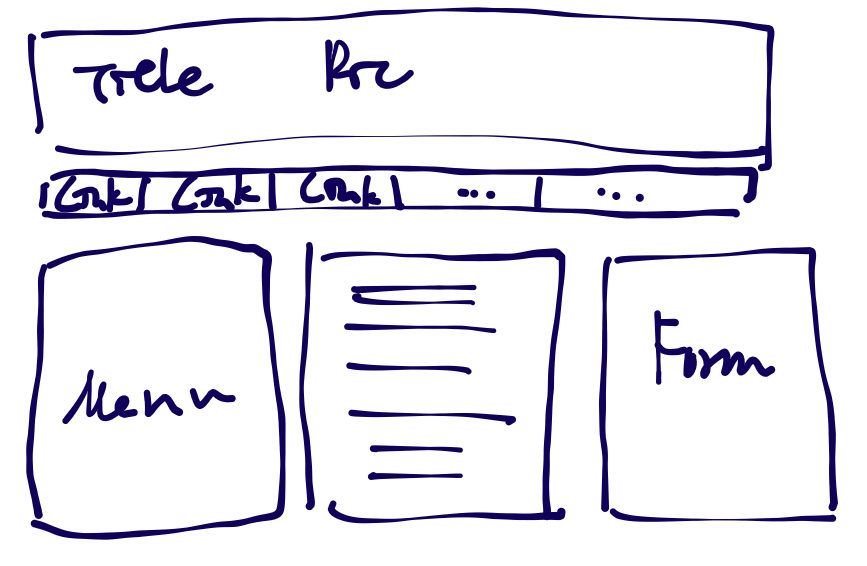 Title Pic
Link Link Link ... ...
Menu
Form